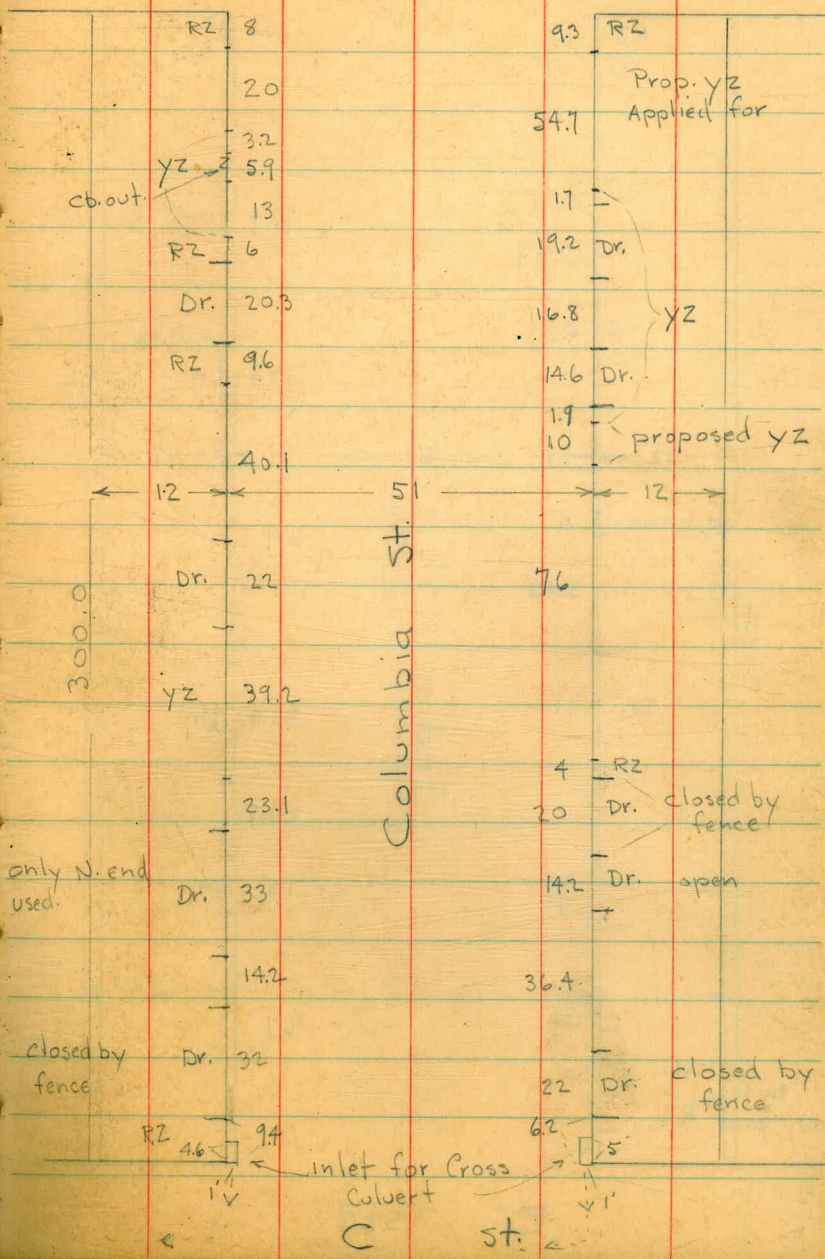 RZ 8
20
3.2
YZ 2 5.9
cb. out
13
RZ 6
Dr. 20.3
RZ 9.6
40.1
12
51
12
Dr. 22
300.0
YZ 39.2
23.1
only N. end
used.
Dr. 33
14.2
closed by
fence
Dr. 32
RZ 9.4
4.6
1'
Columbia St.
9.3 RZ
Prop. YZ
Applied for
54.7
1.7
19.2 Dr.
16.8
YZ
14.6 Dr.
1.9
10
proposed YZ
76
4 RZ
20 Dr.
closed by
fence
14.2 Dr. open
36.4
22 Dr.
closed by
fence
6.2
5'
1'
inlet for Cross
Culvert
C St.